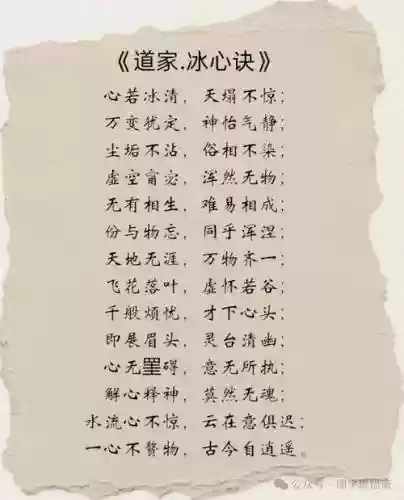 《道家.冰心诀》
心若冰清，天塌不惊；
万变犹定，神怡气静；
尘垢不沾，俗相不染；
虚空甯宓，浑然无物；
无有相生，难易相成；
份与物忘，同乎浑涅；
天地无涯，万物齐一；
飞花落叶，虚怀若谷；
千般烦忧，才下心头；
即展眉头，灵台清幽；
心无罣碍，意无所执；
解心释神，莫然无魂；
水流心不惊，云在意俱迟；
一心不赘物，古今自逍遥。
公众号